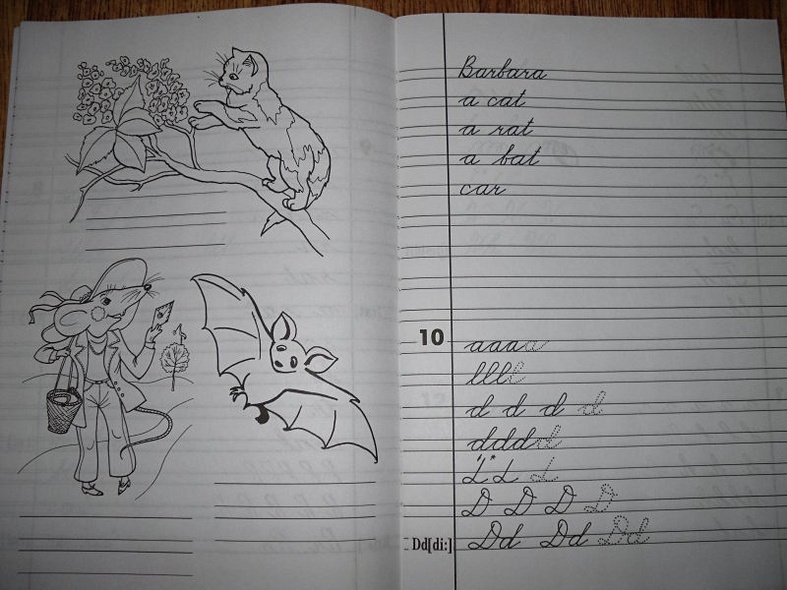 Barbara
a cat
a rat
a bat
car
10
aaaa
llll
d d d d
dddd
L L L
D D D D
Dd[di:] Dd Dd Dd